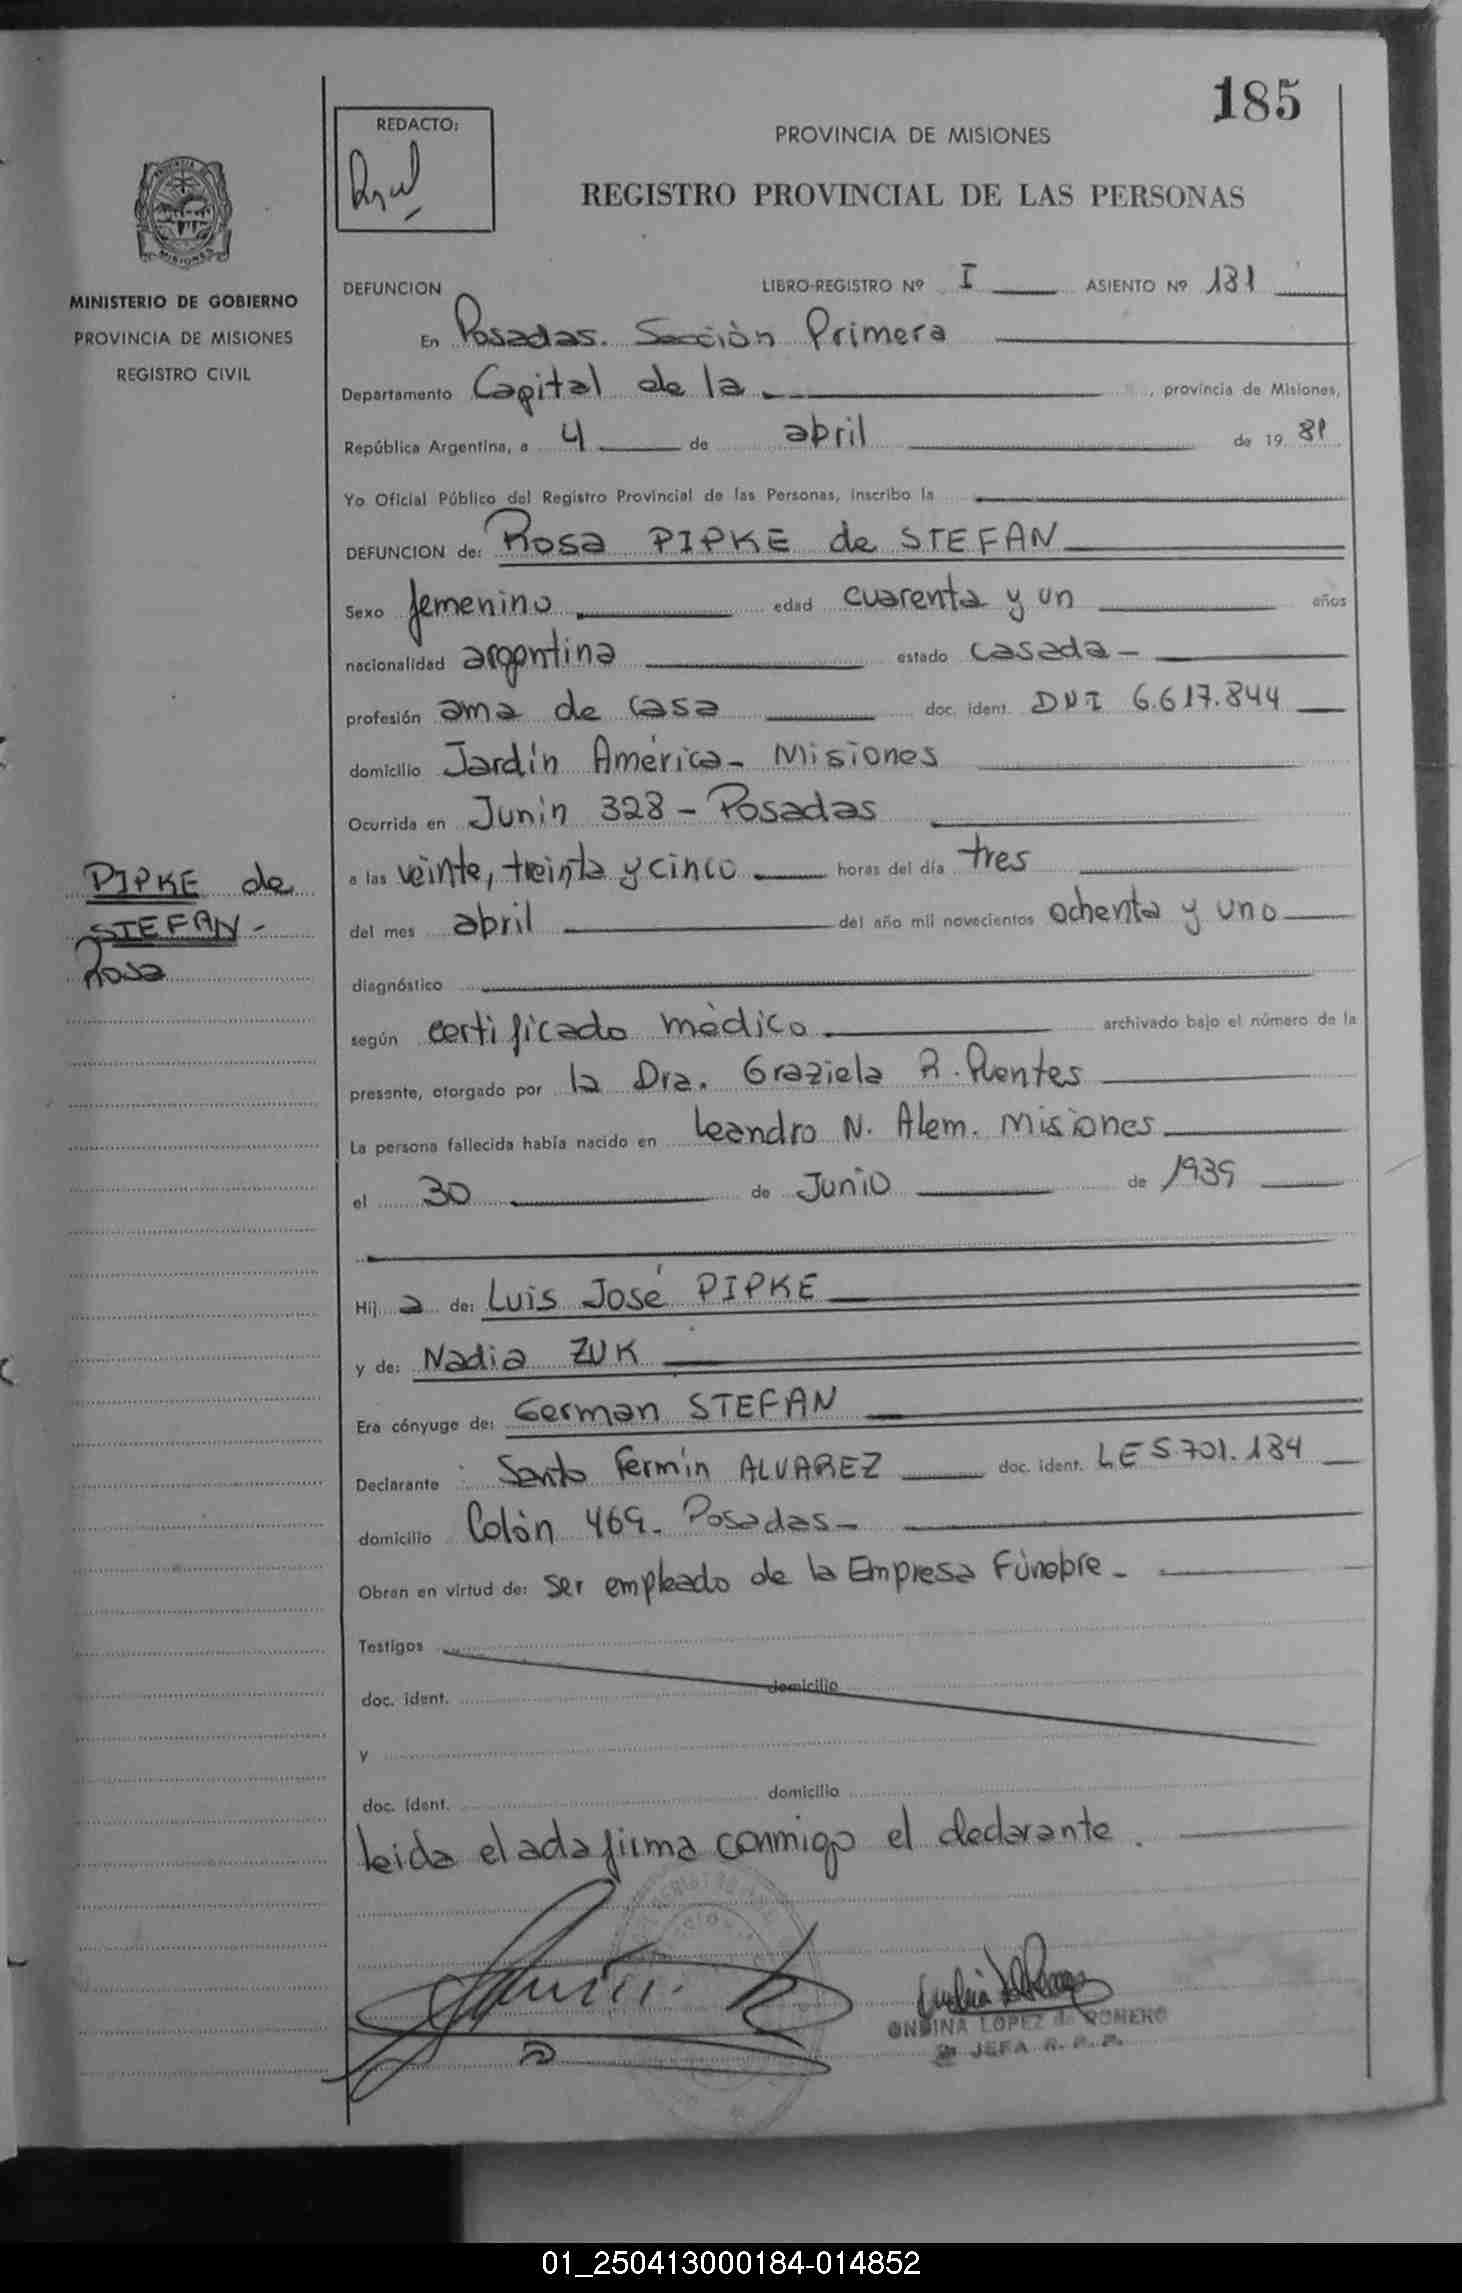 185
REDACTO:
PROVINCIA DE MISIONES
REGISTRO PROVINCIAL DE LAS PERSONAS
MISIONES
MINISTERIO DE GOBIERNO
PROVINCIA DE MISIONES
REGISTRO CIVIL
DEFUNCION LIBRO-REGISTRO Nº I ASIENTO Nº 181
En Posadas. Sección Primera
Departamento Capital de la , provincia de Misiones,
República Argentina, a 4 de abril de 19 81
Yo Oficial Público del Registro Provincial de las Personas, inscribo la
DEFUNCION de: Rosa PIPKE de STEFAN
Sexo femenino edad cuarenta y un años
nacionalidad argentina estado casada -
profesión ama de casa doc. ident. DNI 6.617.844
domicilio Jardín América - Misiones
Ocurrida en Junín 328 - Posadas
a las veinte, treinta y cinco horas del día tres
del mes abril del año mil novecientos ochenta y uno
PIPKE de
STEFAN -
Rosa
diagnóstico
según certificado médico archivado bajo el número de la
presente, otorgado por la Dra. Graziela R. Puentes
La persona fallecida había nacido en Leandro N. Alem. Misiones
el 30 de Junio de 1939
Hij a de: Luis José PIPKE
y de: Nadia ZUK
Era cónyuge de: German STEFAN
Declarante : Santo Fermín ALVAREZ doc. ident. LE 5.701.184
domicilio Colón 469 - Posadas -
Obran en virtud de: ser empleado de la Empresa Fúnebre -
Testigos
doc. ident. domicilio
y
doc. ident. domicilio
Leida el acta firma conmigo el declarante.
ONDINA LOPEZ de ROMERO
JEFA R. P. P.
01_250413000184-014852